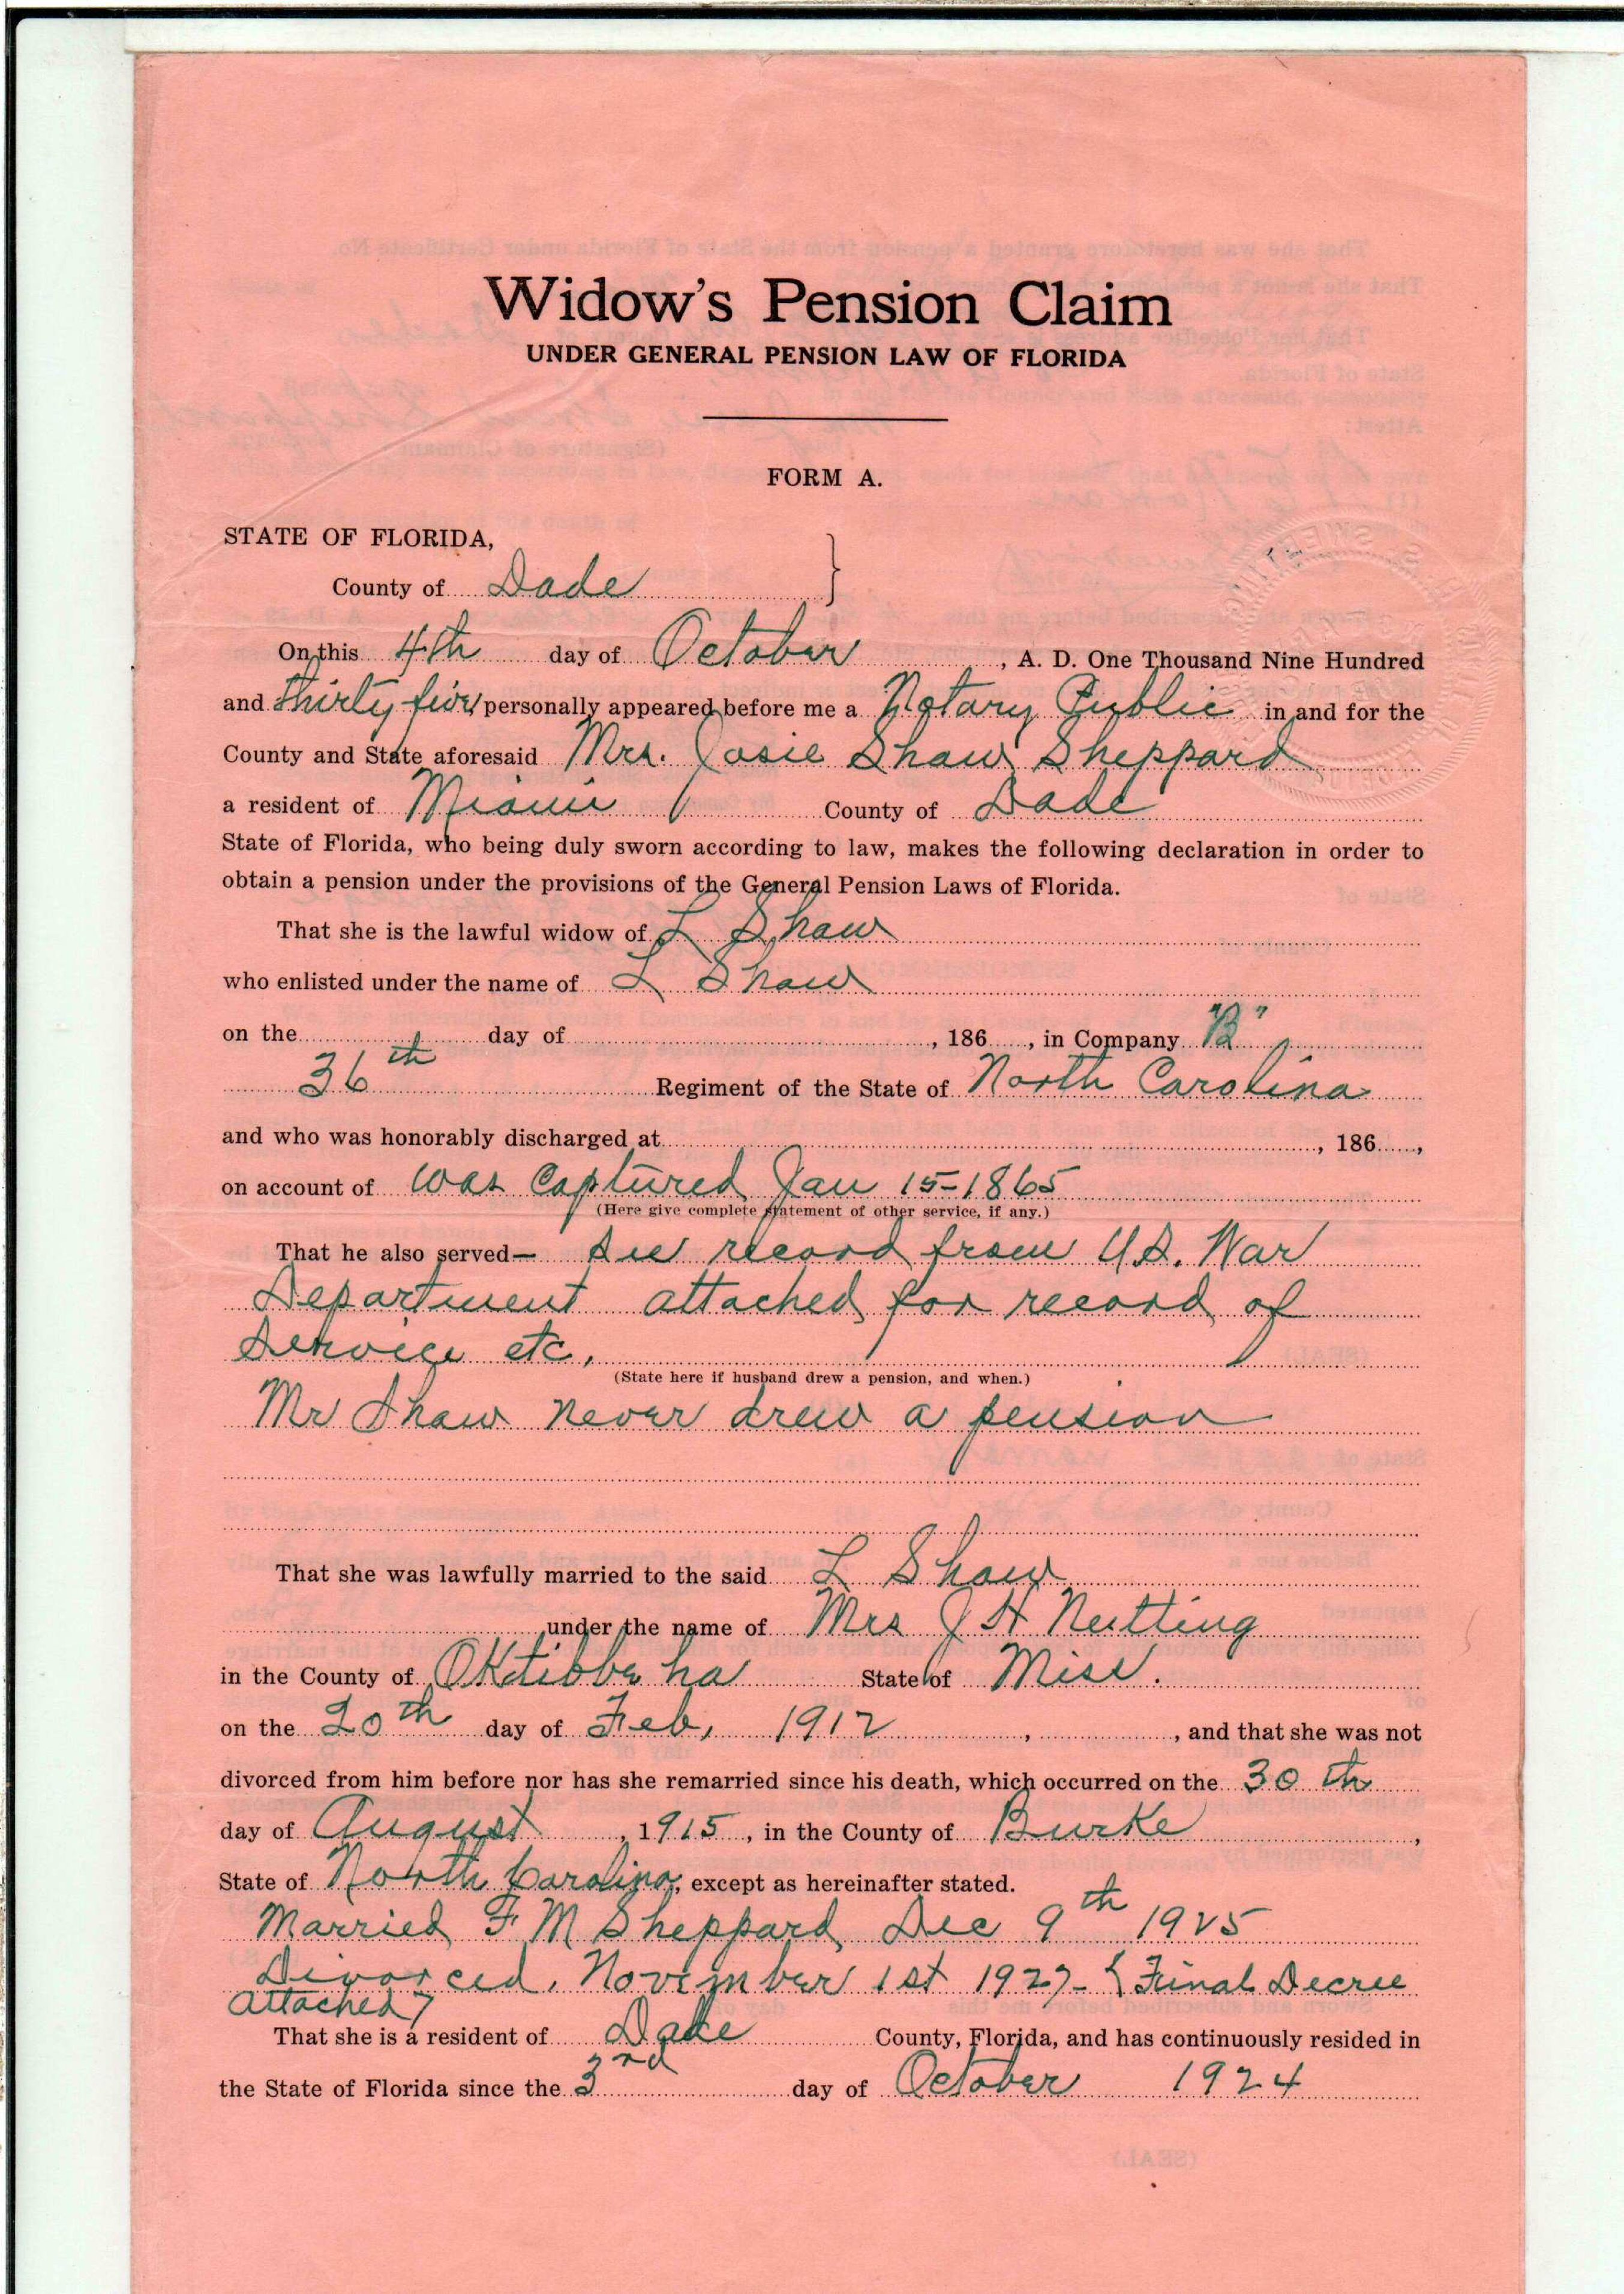 Widow's Pension Claim
UNDER GENERAL PENSION LAW OF FLORIDA
FORM A.
STATE OF FLORIDA,
County of Dade }
On this 4th day of October, A. D. One Thousand Nine Hundred
and thirty five personally appeared before me a Notary Public in and for the
County and State aforesaid Mrs. Josie Shaw Sheppard
a resident of Miami County of Dade
State of Florida, who being duly sworn according to law, makes the following declaration in order to
obtain a pension under the provisions of the General Pension Laws of Florida.
That she is the lawful widow of L Shaw
who enlisted under the name of L Shaw
on the day of , 186 , in Company "B"
36th Regiment of the State of North Carolina
and who was honorably discharged at , 186 ,
on account of was captured Jan 15-1865
(Here give complete statement of other service, if any.)
That he also served— See record from U.S. War
Department attached for record of
Service etc,
(State here if husband drew a pension, and when.)
Mr Shaw never drew a pension
That she was lawfully married to the said L Shaw
under the name of Mrs J H Nutting
in the County of Oktibbeha State of Miss.
on the 20th day of Feb, 1912 , , and that she was not
divorced from him before nor has she remarried since his death, which occurred on the 30th
day of August , 1915 , in the County of Burke ,
State of North Carolina, except as hereinafter stated.
Married F M Sheppard Dec 9th 1925
Divorced. November 1st 1927- { Final Decree
attached }
That she is a resident of Dade County, Florida, and has continuously resided in
the State of Florida since the 3rd day of October 1924